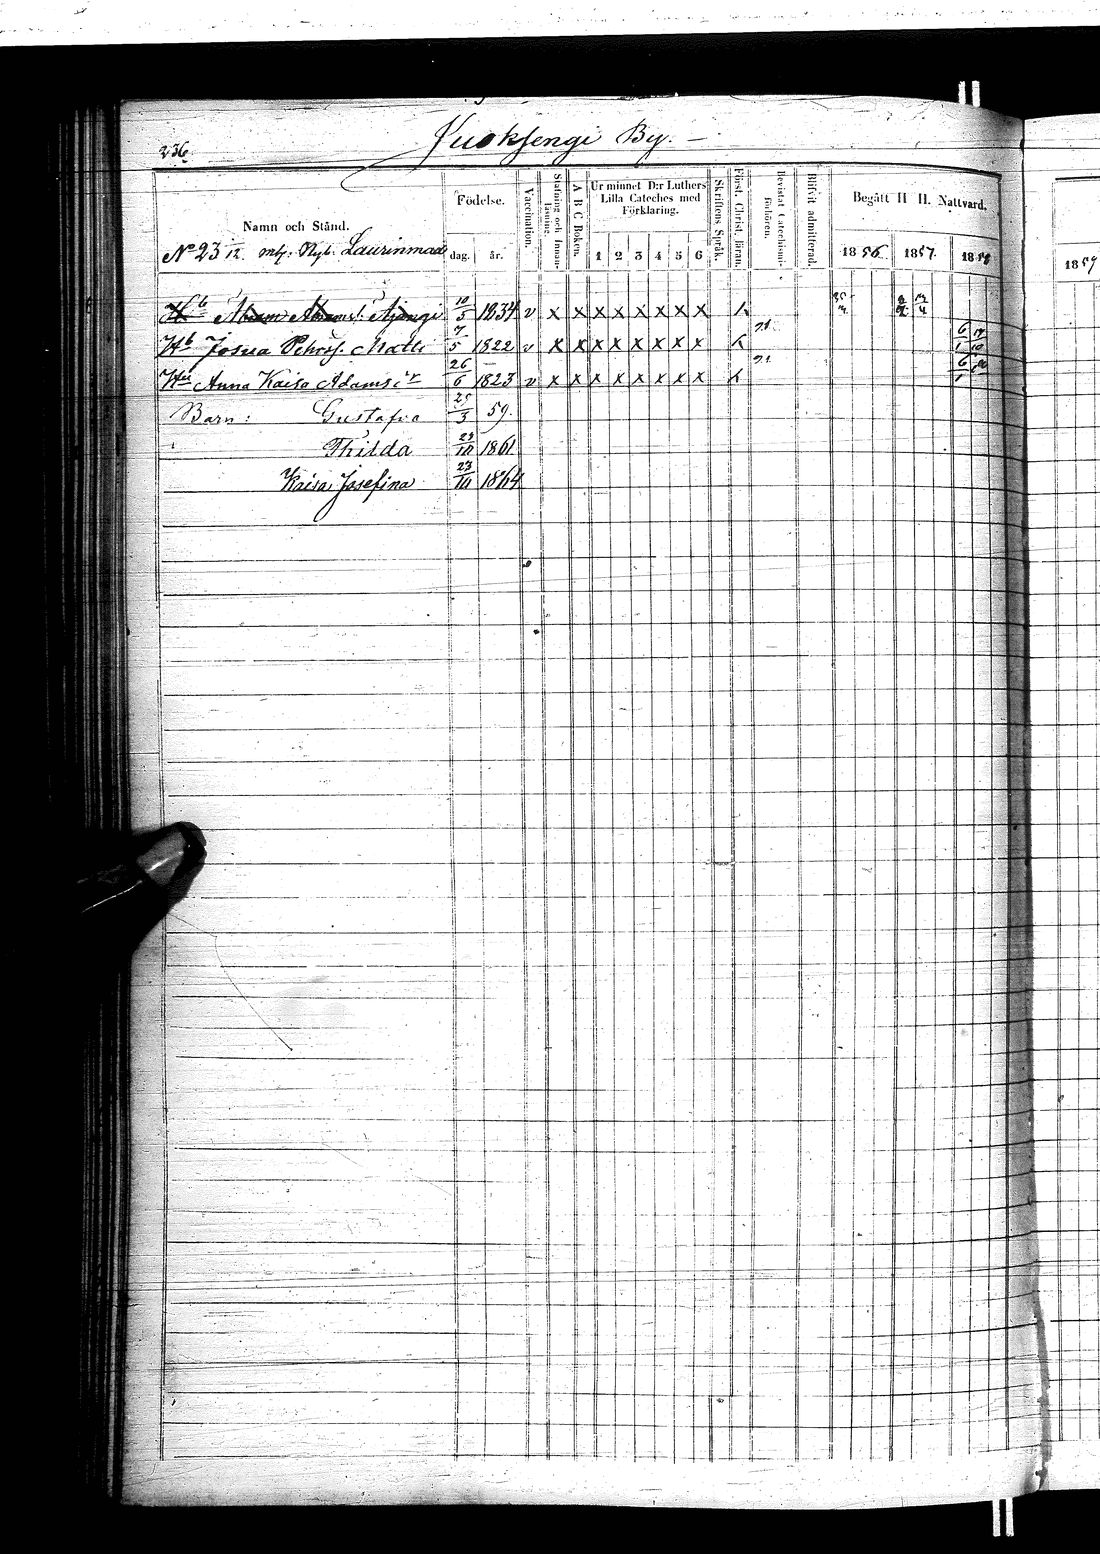 236
Kuoksengi By.
Namn och Stånd.
Födelse.
dag. år.
Vaccination.
Stafning och Innanläsning.
A B C Boken.
Ur minnet D:r Luthers Lilla Cateches med Förklaring.
1 2 3 4 5 6
Skriftens Språk.
Först. Christ. läran.
Bevistat Catechismiförhören.
Blifvit admitterad.
Begått H H. Nattvard.
1856 1857. 1858 1859
No 23 /12. Nyb. Laurinmaa
Hb 10/5 1834 v x x x x x x x x
Hb Josua Pehrss. Matti 7/5 1822 v x x x x x x x x
Hu Anna Kaisa Adamsdr 26/6 1823 v x x x x x x x x
Barn: Gustafva 25/3 59.
Thilda 29/10 1861
Kaisa Josefina 23/10 1864